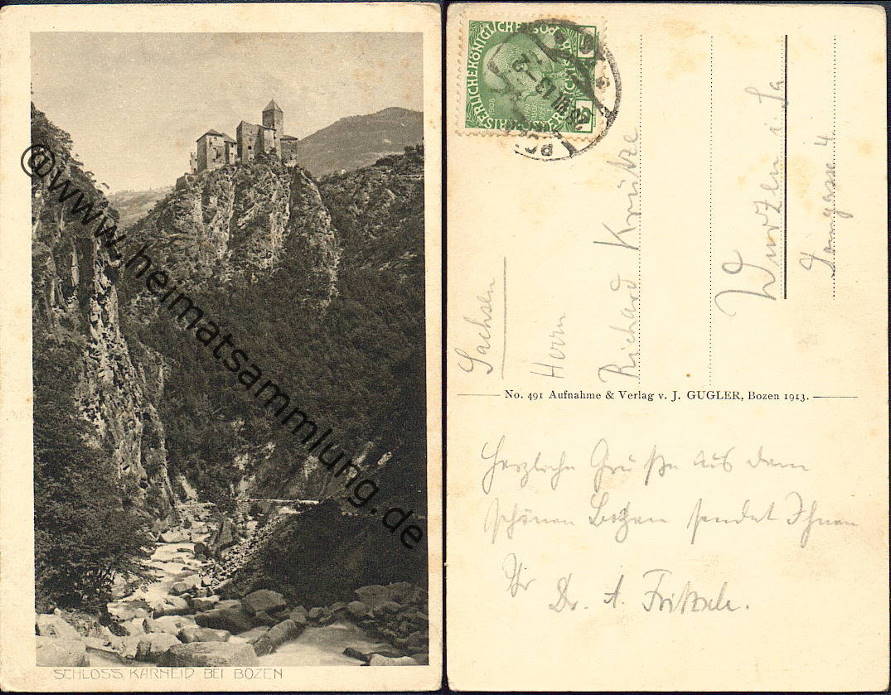 @www.heimatsammlung.de
SCHLOSS KARNEID BEI BOZEN
KAISERLICHE KÖNIGLICHE ÖSTERR. POST
5
5
Sachsen
Herrn
Richard Krütze
Wurzen i. Sa
Domgasse 4
No. 491 Aufnahme & Verlag v. J. GUGLER, Bozen 1913.
Herzliche Grüße aus dem
schönen Bozen sendet Ihnen
Ihr
Dr. A.